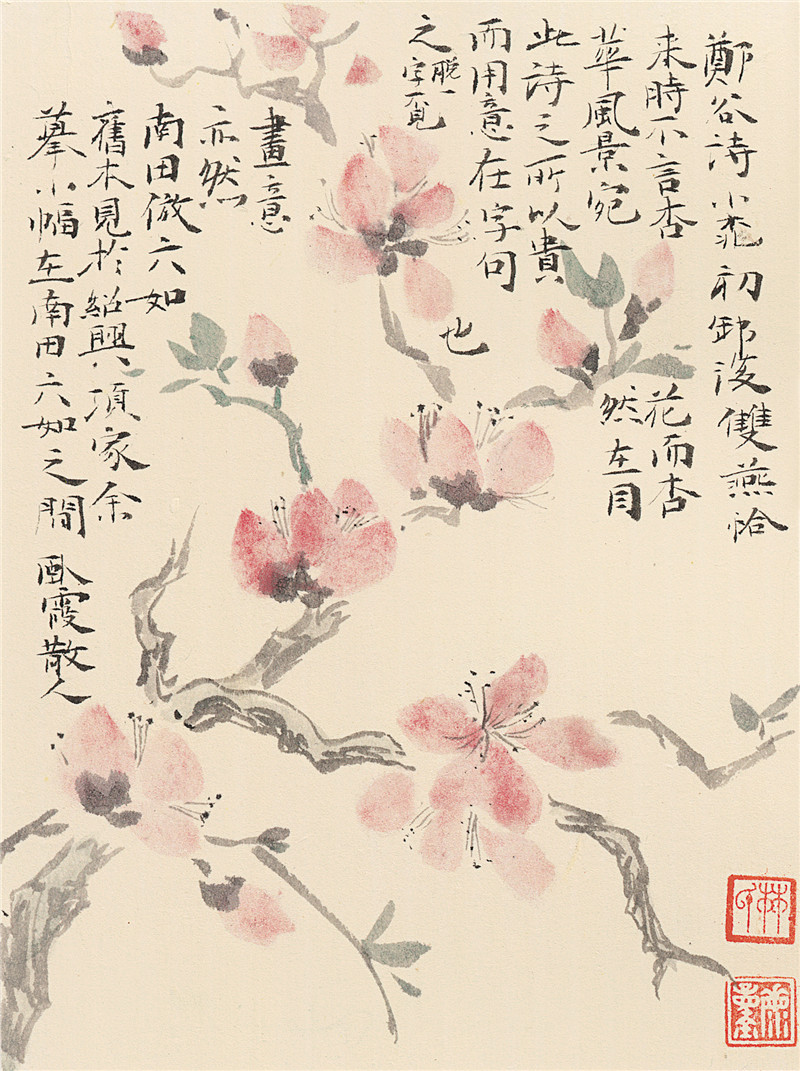 鄭谷詩小桃初卸後雙燕恰
来時不言杏花而杏
華風景宛然在目
此詩之所以貴
而用意在字句
之
脱一
字
也
畫意
亦然
南田倣六如
舊本見於紹興項家余
摹小幅在南田六如之間 臥霞散人